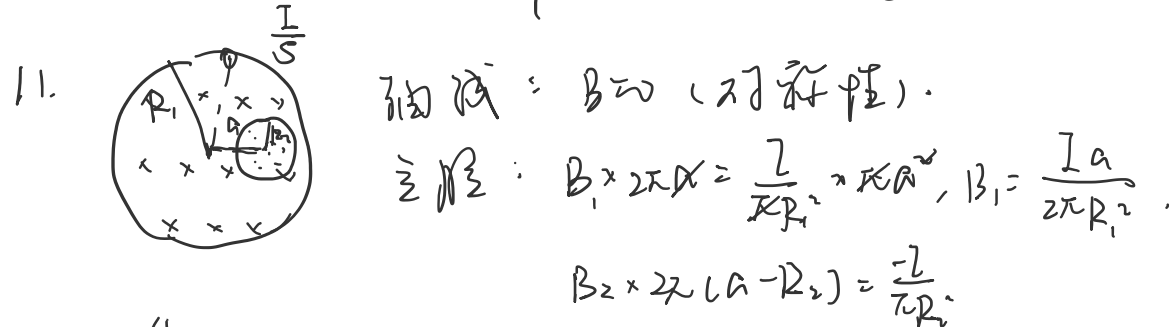 11.
I/S
R₁
a
R₂
轴线: B=0 (对称性).
B₁×2πa = I/(πR₁²) × πa², B₁ = Ia/(2πR₁²).
B₂×2π(a-R₂) = -I/(πR₂²)